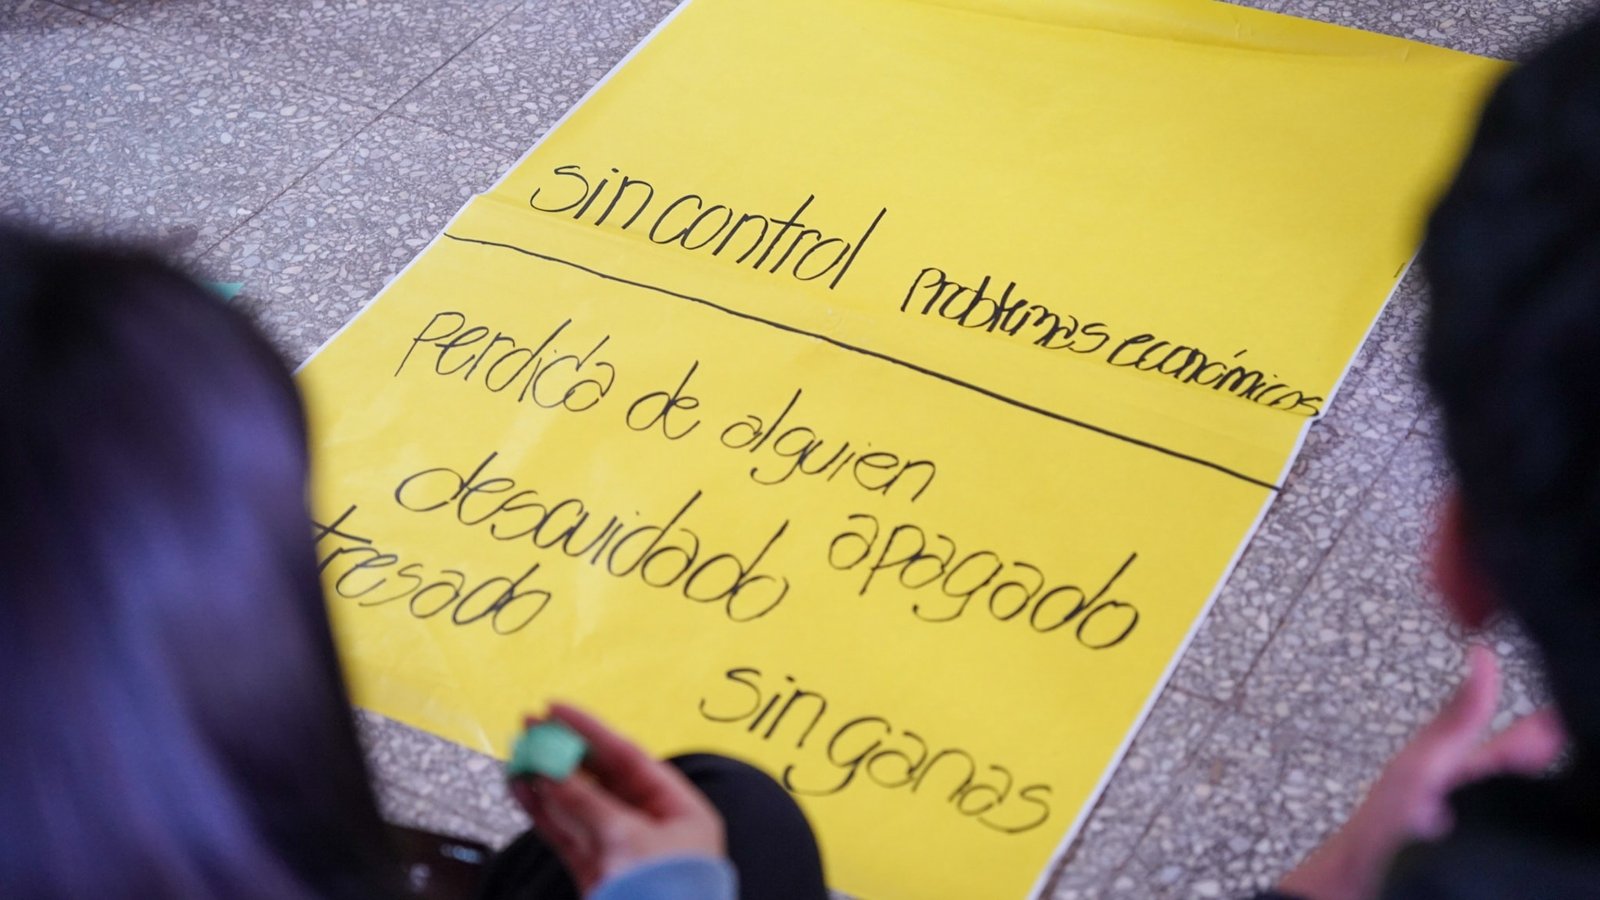 sin control problemas económicos
perdida de alguien
descuidado apagado
tresado
sin ganas